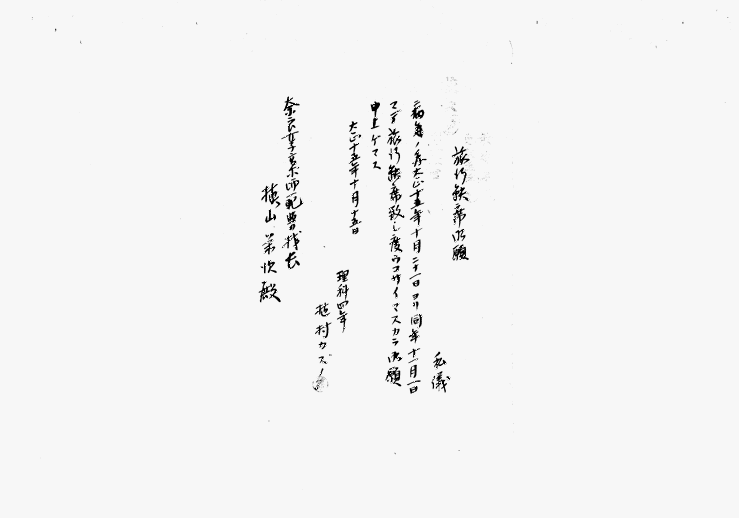 旅行欠席御願
私儀
病氣ノ為大正十五年十月二十一日ヨリ同年十一月一日
マデ旅行欠席致シ度ウゴザイマスカラ御願
申上ゲマス
大正十五年十月十五日
理科四年
植村カズノ
奈良女子高等師範學校長
槇山榮次殿